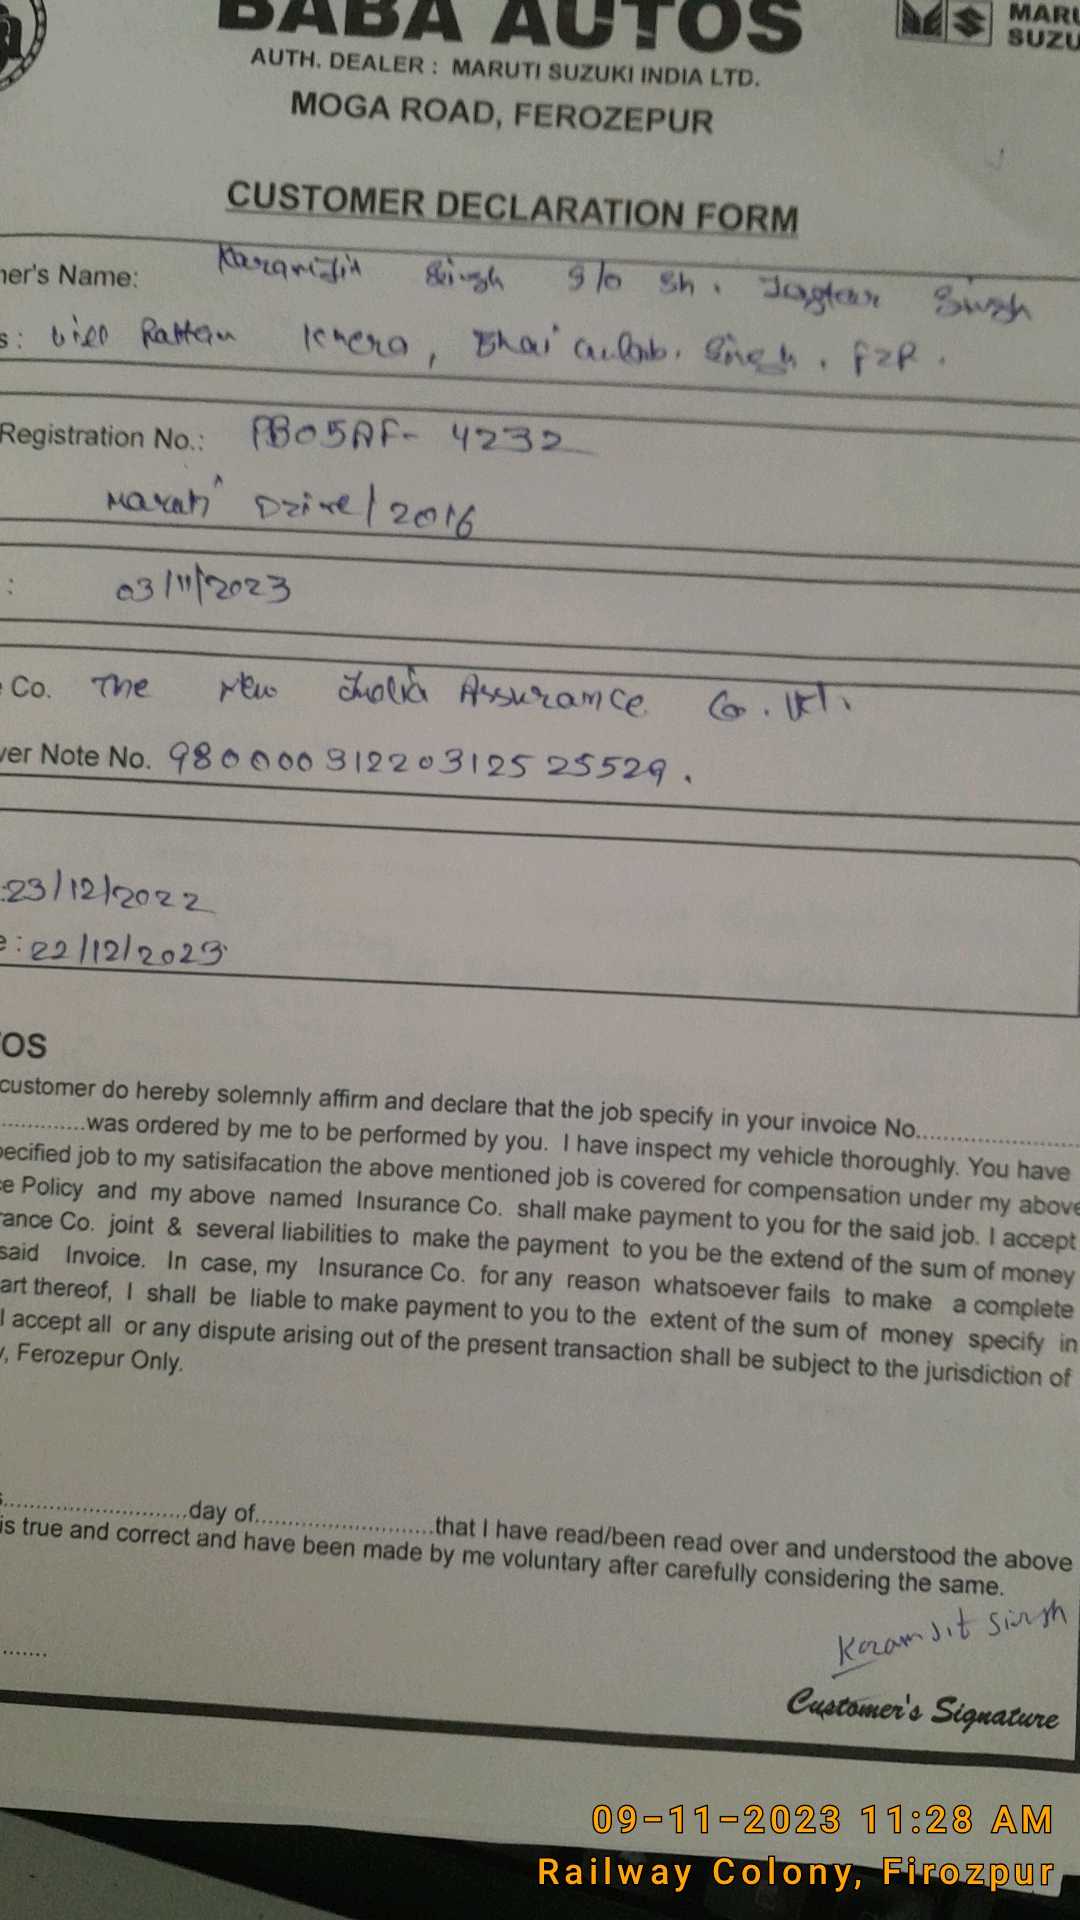 BABA AUTOS
MARU
SUZU
AUTH. DEALER : MARUTI SUZUKI INDIA LTD.
MOGA ROAD, FEROZEPUR
CUSTOMER DECLARATION FORM
ner's Name: Karamjit Singh S/o Sh. Jagtar Singh
s: Vill Rattan Khera, Bhai Singh. FZR.
Registration No.: PB05AF- 4232
Maruti Dzire/2016
: 03/11/2023
e Co. The New India Assurance Co. Ltd.
ver Note No. 98000031220312525529.
:23/12/2022
e:22/12/2023
OS
customer do hereby solemnly affirm and declare that the job specify in your invoice No..................
.............was ordered by me to be performed by you. I have inspect my vehicle thoroughly. You have
pecified job to my satisifacation the above mentioned job is covered for compensation under my above
ce Policy and my above named Insurance Co. shall make payment to you for the said job. I accept
rance Co. joint & several liabilities to make the payment to you be the extend of the sum of money
said Invoice. In case, my Insurance Co. for any reason whatsoever fails to make a complete
art thereof, I shall be liable to make payment to you to the extent of the sum of money specify in
I accept all or any dispute arising out of the present transaction shall be subject to the jurisdiction of
y, Ferozepur Only.
s............................day of...........................that I have read/been read over and understood the above
is true and correct and have been made by me voluntary after carefully considering the same.
Karamjit Singh
.......
Customer's Signature
09-11-2023 11:28 AM
Railway Colony, Firozpur